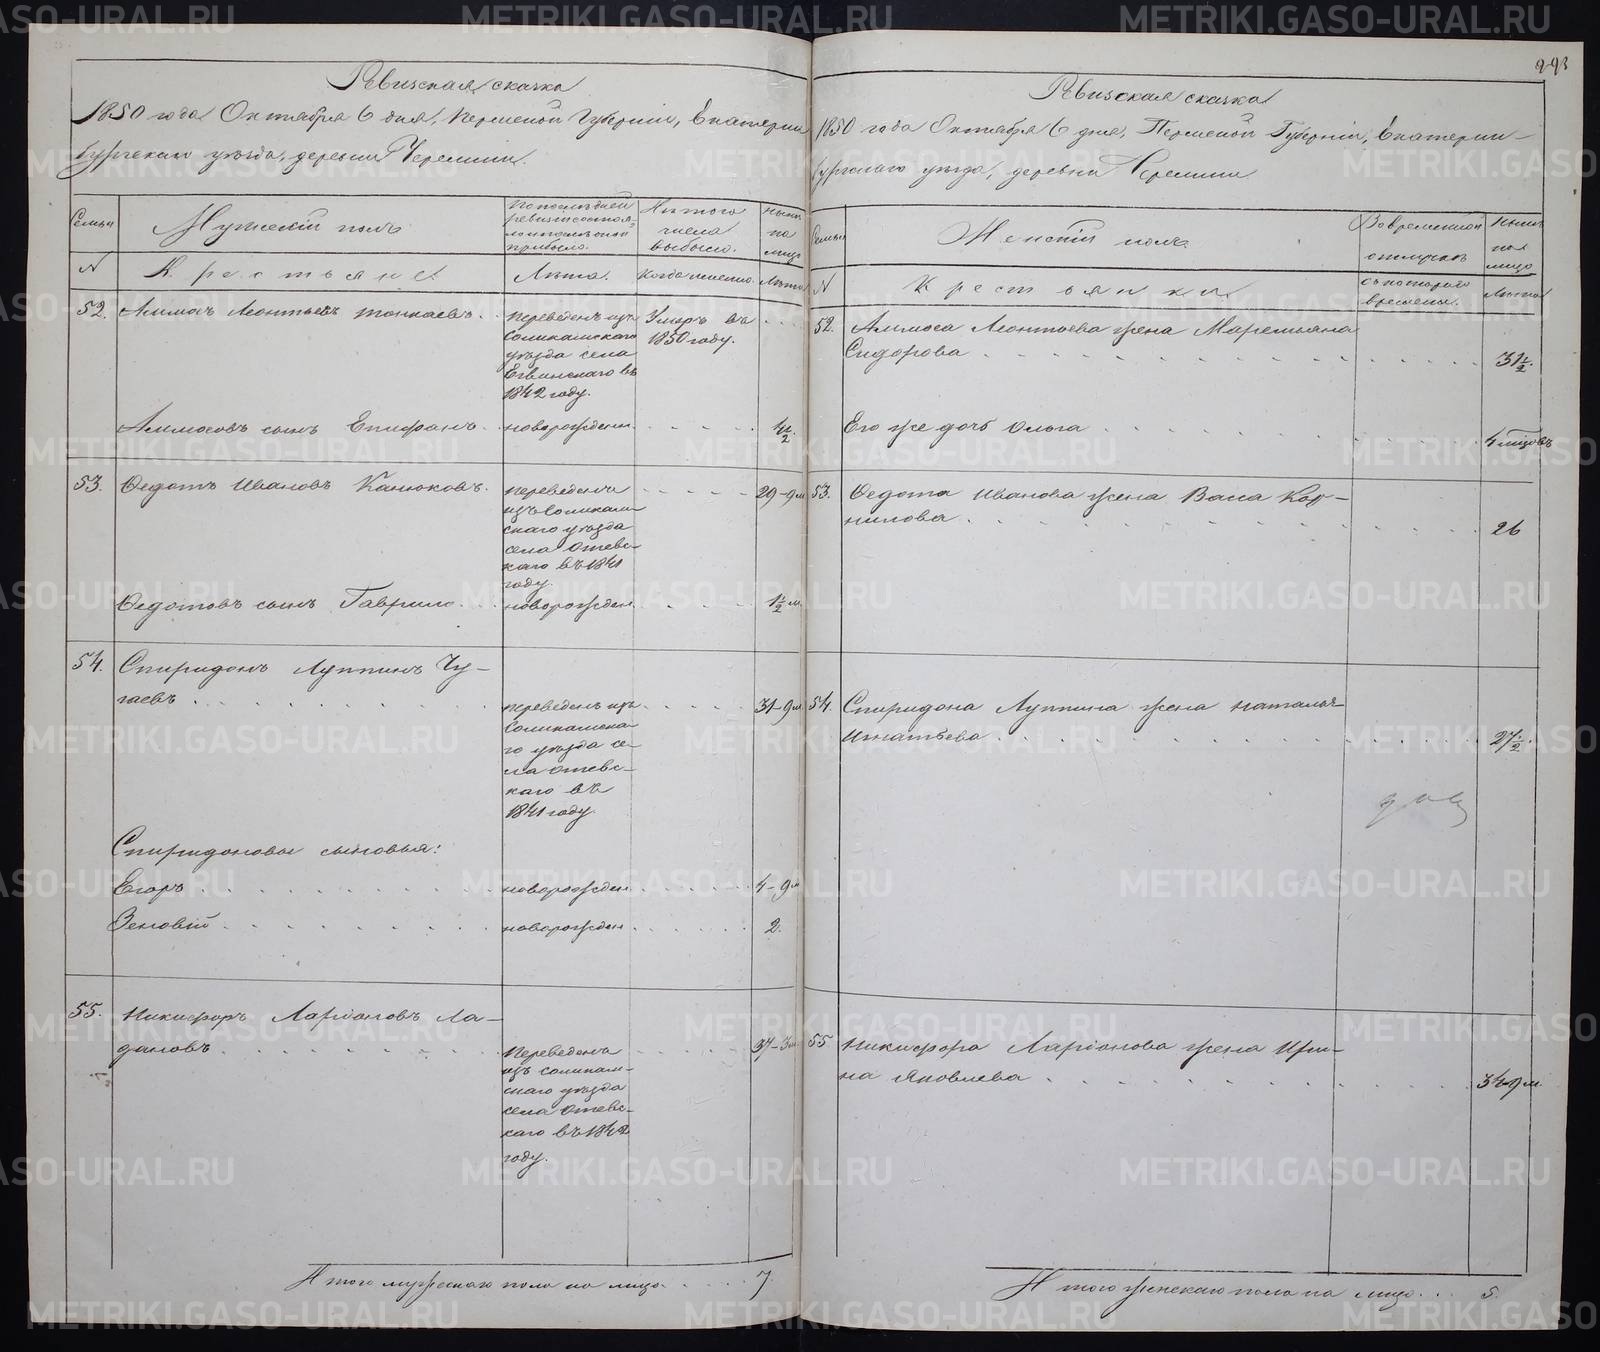 Ревизская сказка
1850 года Октября 6 дня, Пермской Губернiи, Екатерин
бургскаго уѣзда, деревни Черемши.
Семьи
Мужескiй полъ
По последней
ревизiи состоя-
ло и после оной
прибыло.
Изъ того
числа
выбыло.
Нынѣ
на
лицо
N
Крестьяне
Лѣта.
Когда именно.
Лѣта
52. Леонтьевъ переведенъ изъ Умеръ въ
Соликамскаго 1850 году.
уѣзда села
Егвинскаго въ
1842 году.
сынъ Епифанъ. новорожден.
53. Ѳедотъ Ивановъ Канюковъ. переведенъ 29-9 м
изъ Соликам-
скаго уѣзда
села Отевс-
каго въ 1841
году.
Ѳедотовъ сынъ Гаврило новорожден. 1 1/2 м
54. Спиридонъ Луппинъ Чу-
гаевъ переведенъ изъ 31-9 м
Соликамска-
го уѣзда се-
ла Отевс-
каго въ
1841 году.
Спиридоновы сыновья:
Егоръ новорожден 4-9 м
Зеновiй новорожден 2.
55. Никифоръ Ларiоновъ Ла-
дановъ Переведенъ 37-3 м
изъ Соликам-
скаго уѣзда
села Отевс-
каго въ 1842
году.
Итого мужескаго пола на лицо 7.
Ревизская сказка
1850 года Октября 6 дня, Пермской Губернiи, Екатерин-
бургскаго уѣзда, деревни Черемши
Семьи
Женскiй полъ
Во временной
отлучкѣ
Нынѣ
на
лицо
N
Крестьянки
Съ котораго
времени.
Лѣта
52. Леонтьева жена Маремьяна
Сидорова 31 1/2.
Его же дочь Ольга 4 мѣсцовъ
53. Ѳедота Иванова жена Васса Кор-
нилова 26
54. Спиридона Луппина жена Наталья
Игнатьева 27 1/2.
55. Никифора Ларiонова жена Ири-
на Яковлева 34-9 м.
Итого женскаго пола на лицо 5.
METRIKI.GASO-URAL.RU